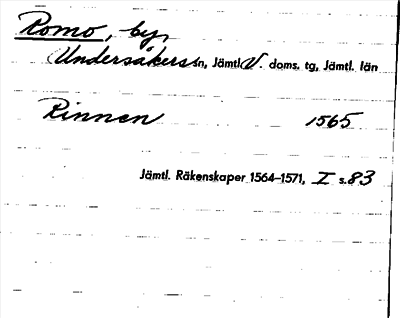 Romo, by,
Undersåkers sn, Jämtl V. doms. tg, Jämtl. län
Rinnen 1565
Jämtl. Räkenskaper 1564–1571, I s. 83